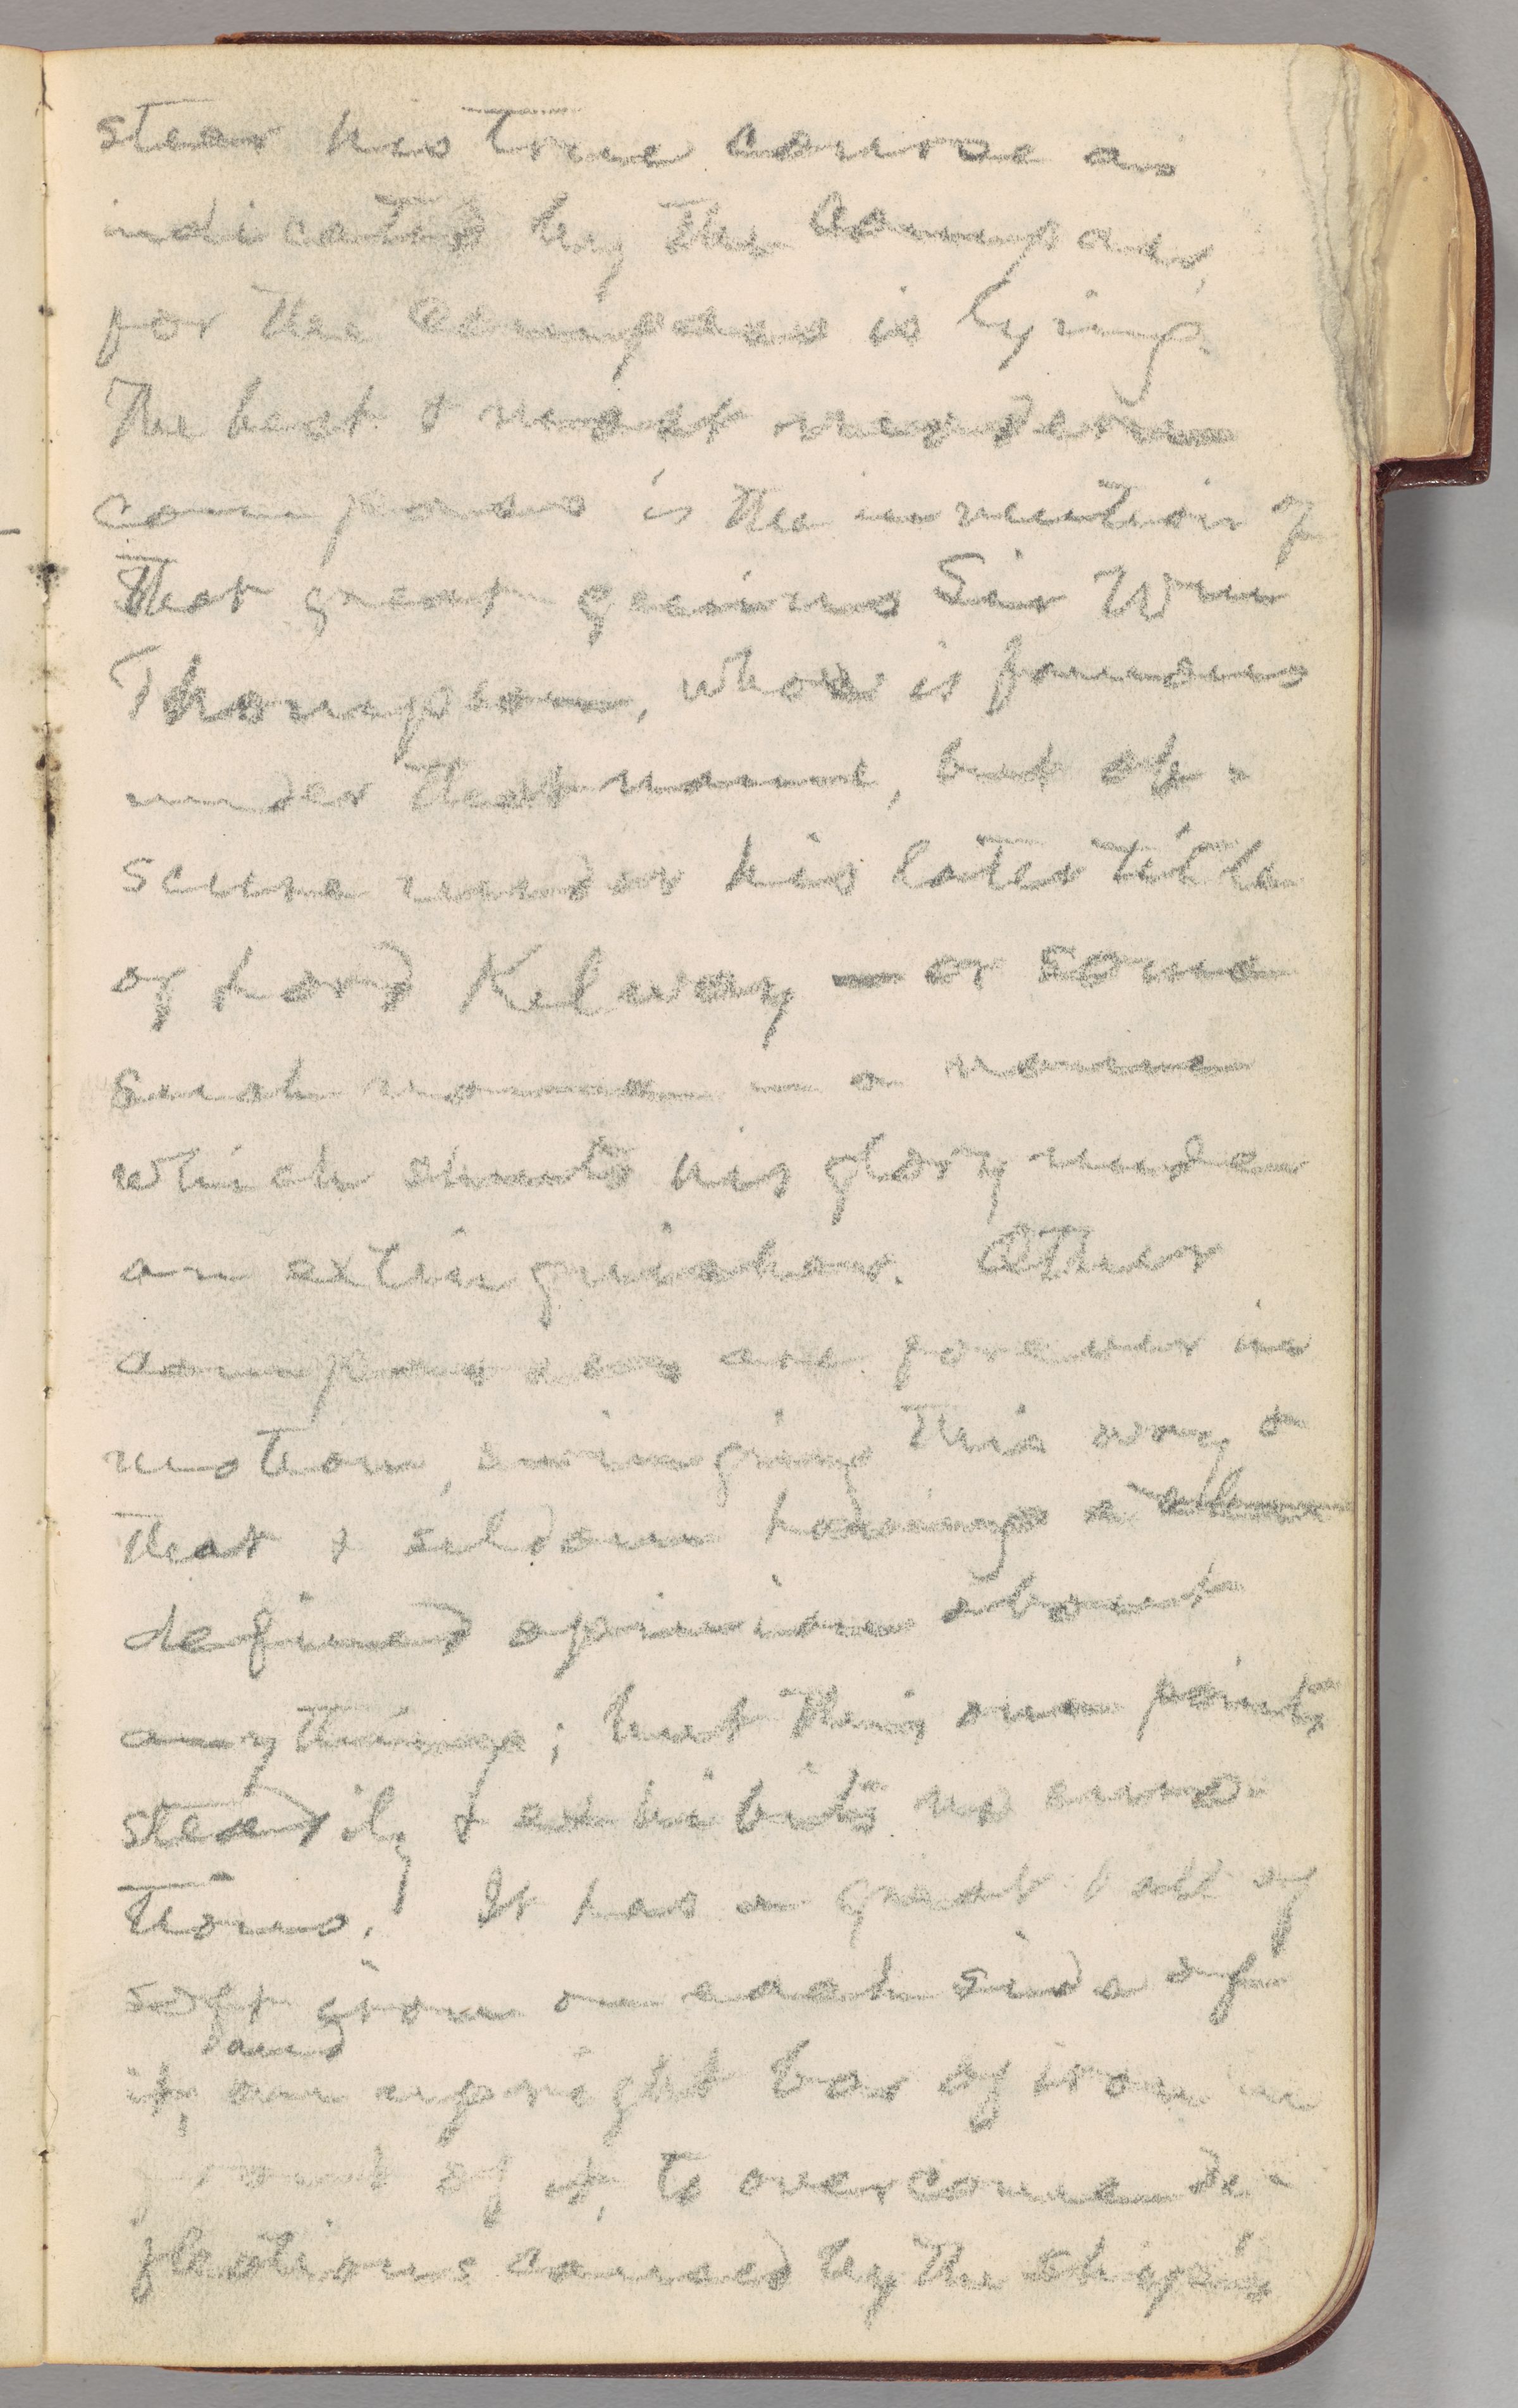 steer his true course as
indicated by the compass,
for the compass is lying.
The best & most modern
compass is the invention of
that great genius Sir Wm
Thompson, who is famous
under that name, but ob-
scure under his later title
of Lord Kelway — or some
such name — a name
which shunts his glory under
an extinguisher. Other
compasses are forever in
motion, swinging this way &
that & seldom having a clear
defined opinion about
anything; but this one points
steadily & exhibits no emo-
tions. It has a great ball of
soft iron on each side of
it, and an upright bar of iron in
front of it, to overcome de-
flections caused by the ship's